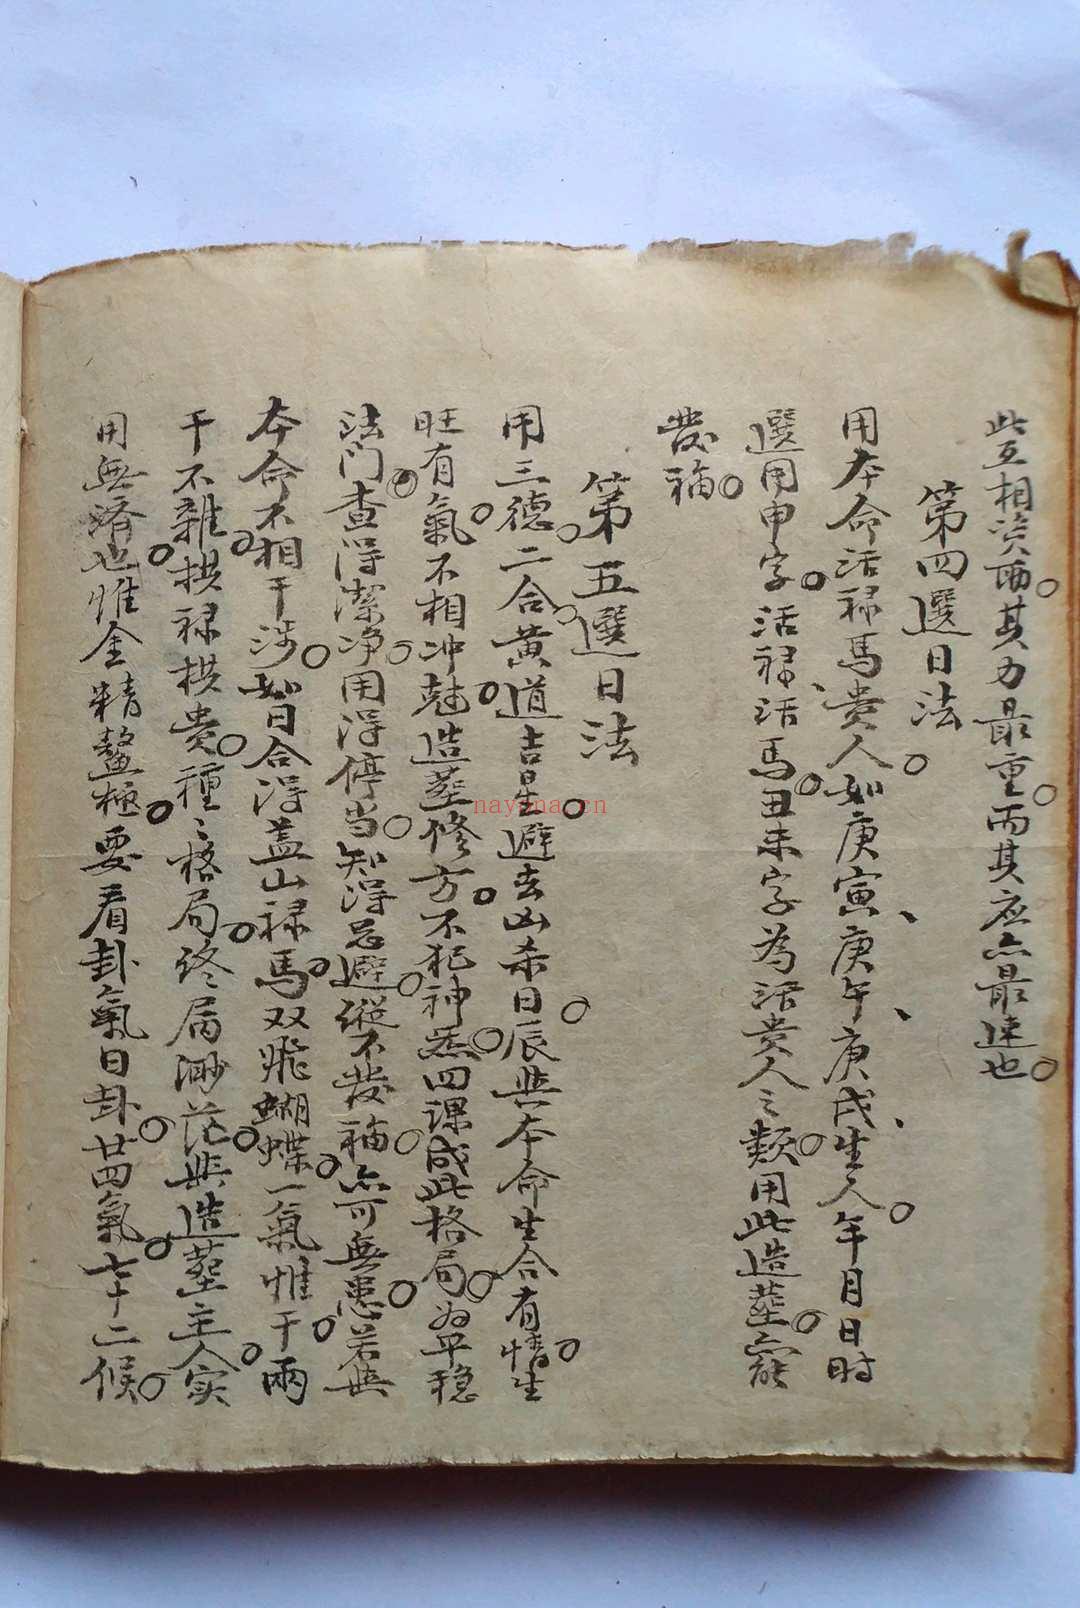 此互相资而其力最重。而其应亦最速也。
第四選日法。
用本命活禄馬貴人如庚寅、庚午、庚戌生人。年月日時
選用申字。活禄活馬。丑未字為活貴人之類。用此造塟。亦能
發福。
第五選日法
用三德。二合。黄道吉星。避去凶杀。日辰與本命生合有情。生
旺有氣。不相冲尅。造塟修方。不犯神煞。四课成此格局。为平稳
法门。查得潔净。用得停当。知得忌避。縱不發福。亦可無患。若與
本命不相干涉。如日合得盖山禄馬。双飛蝴蝶。一氣惟干。兩
干不雜。拱禄拱貴。種〻格局。终属渺茫。與造塟主人。实
用無济也。惟金精鳌極。要看卦氣日卦。廿四氣。七十二候。
nayona.cn